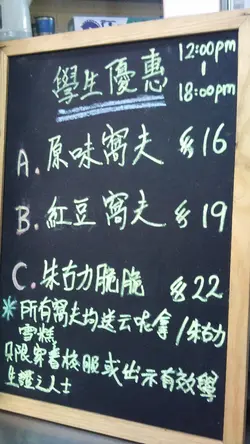 學生優惠
12:00pm
|
18:00pm
A. 原味窩夫 $16
B. 紅豆窩夫 $19
C. 朱古力脆脆 $22
* 所有窩夫均送云呢拿/朱古力
雪糕
只限穿着校服或出示有效學
生證之人士